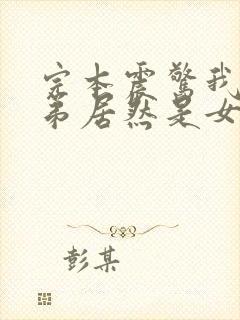 完本震驚我
弟居然是女
彭某